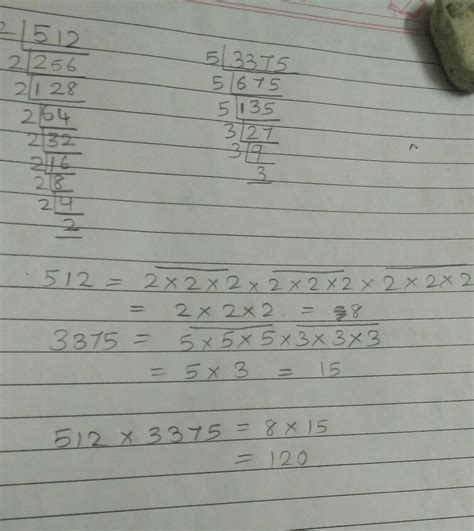 2 512
2 256
2 128
2 64
2 32
2 16
2 8
2 4
2
5 3375
5 675
5 135
3 27
3 9
3
512 = 2 × 2 × 2 × 2 × 2 × 2 × 2 × 2 × 2
= 2 × 2 × 2. = 8
3375 = 5 × 5 × 5 × 3 × 3 × 3
= 5 × 3 = 15
512 × 3375 = 8 × 15
= 120